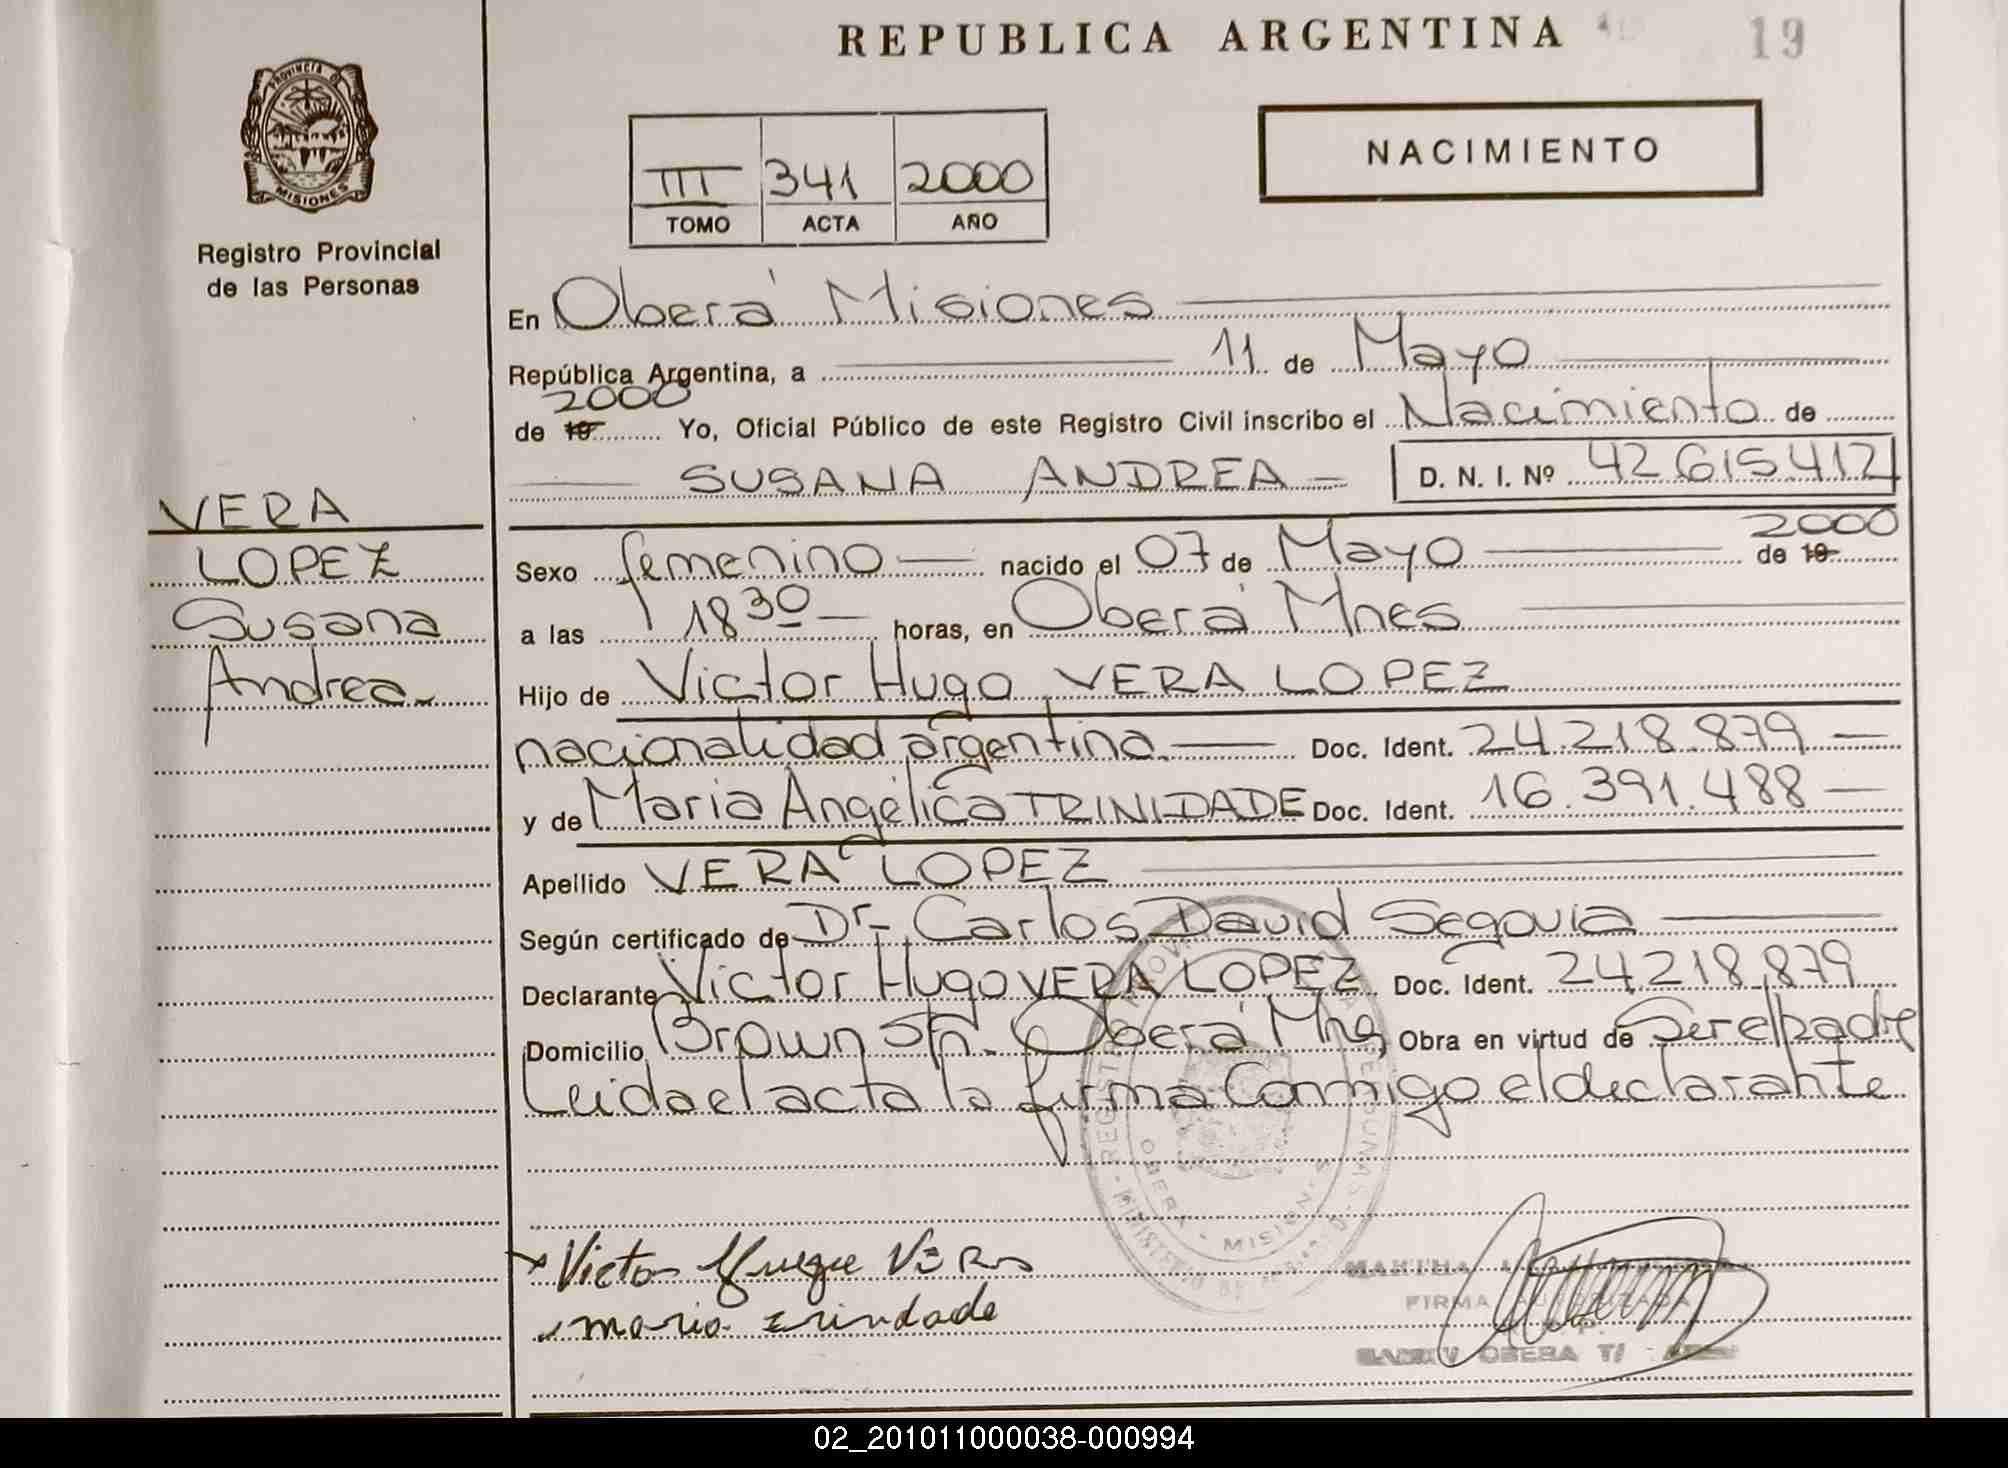 REPUBLICA ARGENTINA 19
PROVINCIA DE
MISIONES
Registro Provincial
de las Personas
NACIMIENTO
III 341 2000
TOMO ACTA AÑO
En Oberá Misiones
República Argentina, a 11 de Mayo
2000
de 19 Yo, Oficial Público de este Registro Civil inscribo el Nacimiento de
SUSANA ANDREA D. N. I. Nº 42.615.412
VERA
LOPEZ
Susana
Andrea
2000
Sexo femenino nacido el 07 de Mayo de 19
a las 18 30 horas, en Oberá Mnes
Hijo de Victor Hugo VERA LOPEZ
nacionalidad argentina Doc. Ident. 24.218.879
y de Maria Angélica TRINIDADE Doc. Ident. 16.391.488
Apellido VERA LOPEZ
Según certificado de Dr. Carlos David Segovia
Declarante Victor Hugo VERA LOPEZ Doc. Ident. 24.218.879
Domicilio Brown s/n. Oberá Mnes Obra en virtud de Ser el padre
Leida el acta la firma Conmigo el declarante
OBERA - MISIONES
Victor Hugo Vera
maria trindade
MARTHA
FIRMA AUTORIZADA
OBERA
02_201011000038-000994